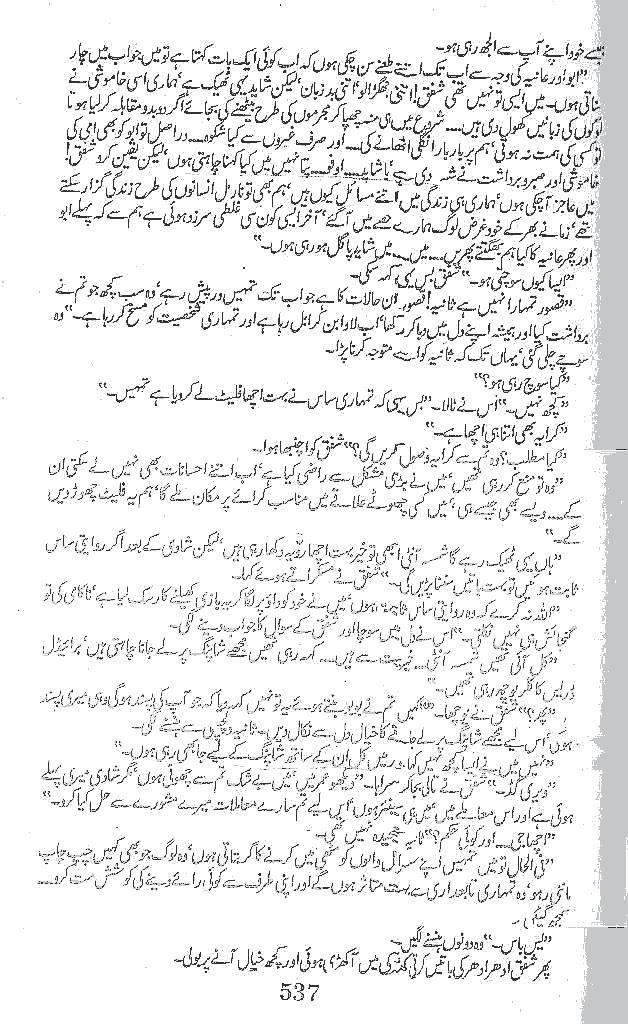 جیسے خود اپنے آپ سے الجھ رہی ہو۔
"ابو اور عانیہ کی وجہ سے اب تک اتنے طعنے سن چکی ہوں کہ اب کوئی ایک بات کہتا ہے تو میں جواب میں چار
سناتی ہوں۔ میں ایسی تو نہیں تھی شفق! اتنی جھگڑالو' اتنی بد زبان' لیکن شاید یہی ٹھیک ہے' ہماری اسی خاموشی نے
لوگوں کی زبانیں کھول دی ہیں.... شروع میں ہی منہ چھپا کر مجرموں کی طرح بیٹھنے کی بجائے اگر دوبدو مقابلہ کر لیا ہوتا
تو کسی کی ہمت نہ ہوتی' ہم پر بار بار انگلی اٹھانے کی.... اور صرف غیروں سے کیا شکوہ.... دراصل تو ابو کو بھی امی کی
خاموشی اور صبر و برداشت نے شہ دی ہے' یا شاید.... اوفو.... پتا نہیں میں کیا کہنا چاہتی ہوں' لیکن یقین کرو شفق!
میں عاجز آ چکی ہوں' ہماری ہی زندگی میں اتنے مسائل کیوں ہیں' ہم بھی تو نارمل انسانوں کی طرح زندگی گزار سکتے
تھے' زمانے بھر کے خود غرض لوگ ہمارے حصے میں آ گئے' آخر ایسی کون سی غلطی سرزد ہوئی ہے ہم سے کہ پہلے ابو
اور پھر عانیہ کا کیا ہم بھگتتے پھریں.... میں.... میں شاید پاگل ہو رہی ہوں۔"
"ایسا کیوں سوچتی ہو۔" شفق بس یہی کہہ سکی۔
"قصور تمہارا نہیں ہے ثانیہ! قصور ان حالات کا ہے جو اب تک تمہیں درپیش رہے' وہ سب کچھ جو تم نے
برداشت کیا اور ہمیشہ اپنے دل میں دبا کر رکھا' اب لاوا بن کر ابل رہا ہے اور تمہاری شخصیت کو مسخ کر رہا ہے۔" وہ
سوچے چلی گئی' یہاں تک کہ ثانیہ کو اسے متوجہ کرنا پڑا۔
"کیا سوچ رہی ہو؟"
"کچھ نہیں۔" اس نے ٹالا۔ "بس یہی کہ تمہاری ساس نے بہت اچھا فلیٹ لے کر دیا ہے تمہیں۔"
"کرایہ بھی اتنا ہی اچھا ہے۔"
"کیا مطلب؟ وہ تم سے کرایہ وصول کریں گی؟" شفق کو اچنبھا ہوا۔
"وہ تو منع کر رہی تھیں' میں نے بڑی مشکل سے راضی کیا ہے' اب اتنے احسانات بھی نہیں لے سکتی ان
کے.... ویسے بھی جیسے ہی' میں کسی چھوٹے علاقے میں مناسب کرائے پر مکان ملے گا' ہم یہ فلیٹ چھوڑ دیں
گے۔"
"ہاں یہی ٹھیک رہے گا شمسہ آنٹی ابھی تو خیر بہت اچھا رویہ دکھا رہی ہیں' لیکن شادی کے بعد اگر روایتی ساس
ثابت ہوئیں تو بہت باتیں سننا پڑیں گی۔" شفق نے مسکراتے ہوئے کہا۔
"اللہ نہ کرے کہ وہ روایتی ساس ثابت ہوں' میں نے خود کو داؤ پر لگا کر یہ بازی کھیلنے کا رسک لیا ہے' ناکامی کی تو
گنجائش ہی نہیں نکلتی۔" اس نے دل میں سوچا اور شفق کے سوال کا جواب دینے لگی۔
"کل آئی تھیں شمسہ آنٹی.... خیریت سے ہیں.... کہہ رہی تھیں مجھے شاپنگ پر لے جانا چاہتی ہیں' برائیڈل
ڈریس کا کلر پوچھ رہی تھیں۔"
"پھر؟" شفق نے پوچھا۔ "کہیں تم نے یو یو بنتے ہوئے یہ تو نہیں کہہ دیا کہ جو آپ کی پسند ہو گی وہی میری پسند
ہو گی' اس لیے مجھے شاپنگ پر لے جانے کا خیال دل سے نکال دیں۔" ثانیہ دلچسپی سے ہنسنے لگی۔
"نہیں میں نے ایسا کچھ نہیں کہا' اور میں کل ان کے ساتھ شاپنگ کے لیے جا بھی رہی ہوں۔"
"ویری گڈ۔" شفق نے تالی بجا کر سراہا۔ "دیکھو عمر میں' میں بے شک تم سے چھوٹی ہوں' مگر شادی میری پہلے
ہوئی ہے اور اس معاملے میں' میں ہی سینئر ہوں' اس لیے تم سارے معاملات میرے مشورے سے حل کیا کرو۔"
"اچھا جی.... اور کوئی حکم؟" ثانیہ سنجیدہ نہیں تھی۔
"فی الحال تو میں تمہیں اپنے سسرال والوں کو مٹھی میں کرنے کا گر بتاتی ہوں' وہ لوگ جو بھی کہیں چپ چاپ
مانتی رہو' وہ تمہاری تابعداری سے بہت متاثر ہوں گے اور اپنی طرف سے کوئی رائے دینے کی کوشش مت کرو....
سمجھ گئیں۔
"یس باس۔" وہ دونوں ہنسنے لگیں۔
پھر شفق ادھر ادھر کی باتیں کرتی کھڑکی میں آ کھڑی ہوئی اور کچھ خیال آنے پر بولی۔
537